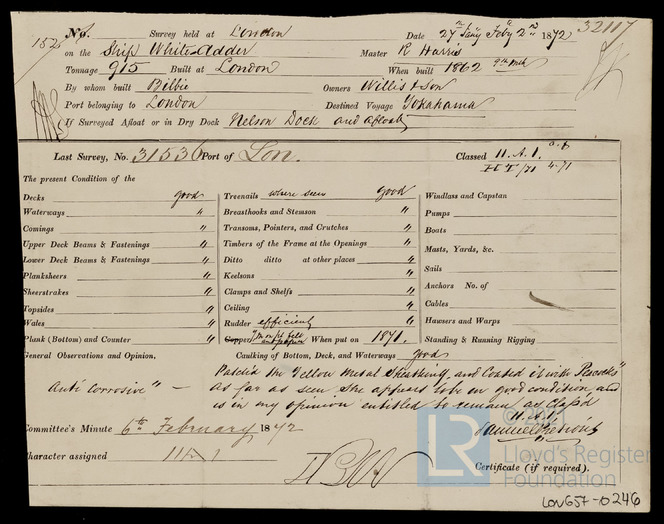 No. Survey held at London Date 27th Jany Feby 2nd 1872 32117
on the Ship White Adder Master R Harris
Tonnage 915 Built at London When built 1862 9th Mth
By whom built Bilbie Owners Willis & Son
Port belonging to London Destined Voyage Yokahama
If Surveyed Afloat or in Dry Dock Nelson Dock and afloat
Last Survey, No. 31536 Port of Lon. Classed 11.A.1.
4.71
The present Condition of the
Decks good Treenails where seen good Windlass and Capstan
Waterways " Breasthooks and Stemson " Pumps
Comings " Transoms, Pointers, and Crutches " Boats
Upper Deck Beams & Fastenings " Timbers of the Frame at the Openings " Masts, Yards, &c.
Lower Deck Beams & Fastenings " Ditto ditto at other places " Sails
Planksheers " Keelsons " Anchors No. of
Sheerstrakes " Clamps and Shelfs " Cables
Topsides " Ceiling " Hawsers and Warps
Wales " Rudder efficient Standing & Running Rigging
Plank (Bottom) and Counter " Copper Y M on felt When put on 1871.
General Observations and Opinion. Caulking of Bottom, Deck, and Waterways good
Patch'd the Yellow Metal Sheathing and Coated it with "Peacocks
Anti Corrosive" — As far as seen She appears to be in good condition and
is in my opinion entitled to remain as Class'd
11.A.1.
Committee's Minute 6th February 1872 Samuel Pretious
Character assigned 11A1
Certificate (if required).
© 2021
LR Lloyd's Register
Foundation
LON657-0246